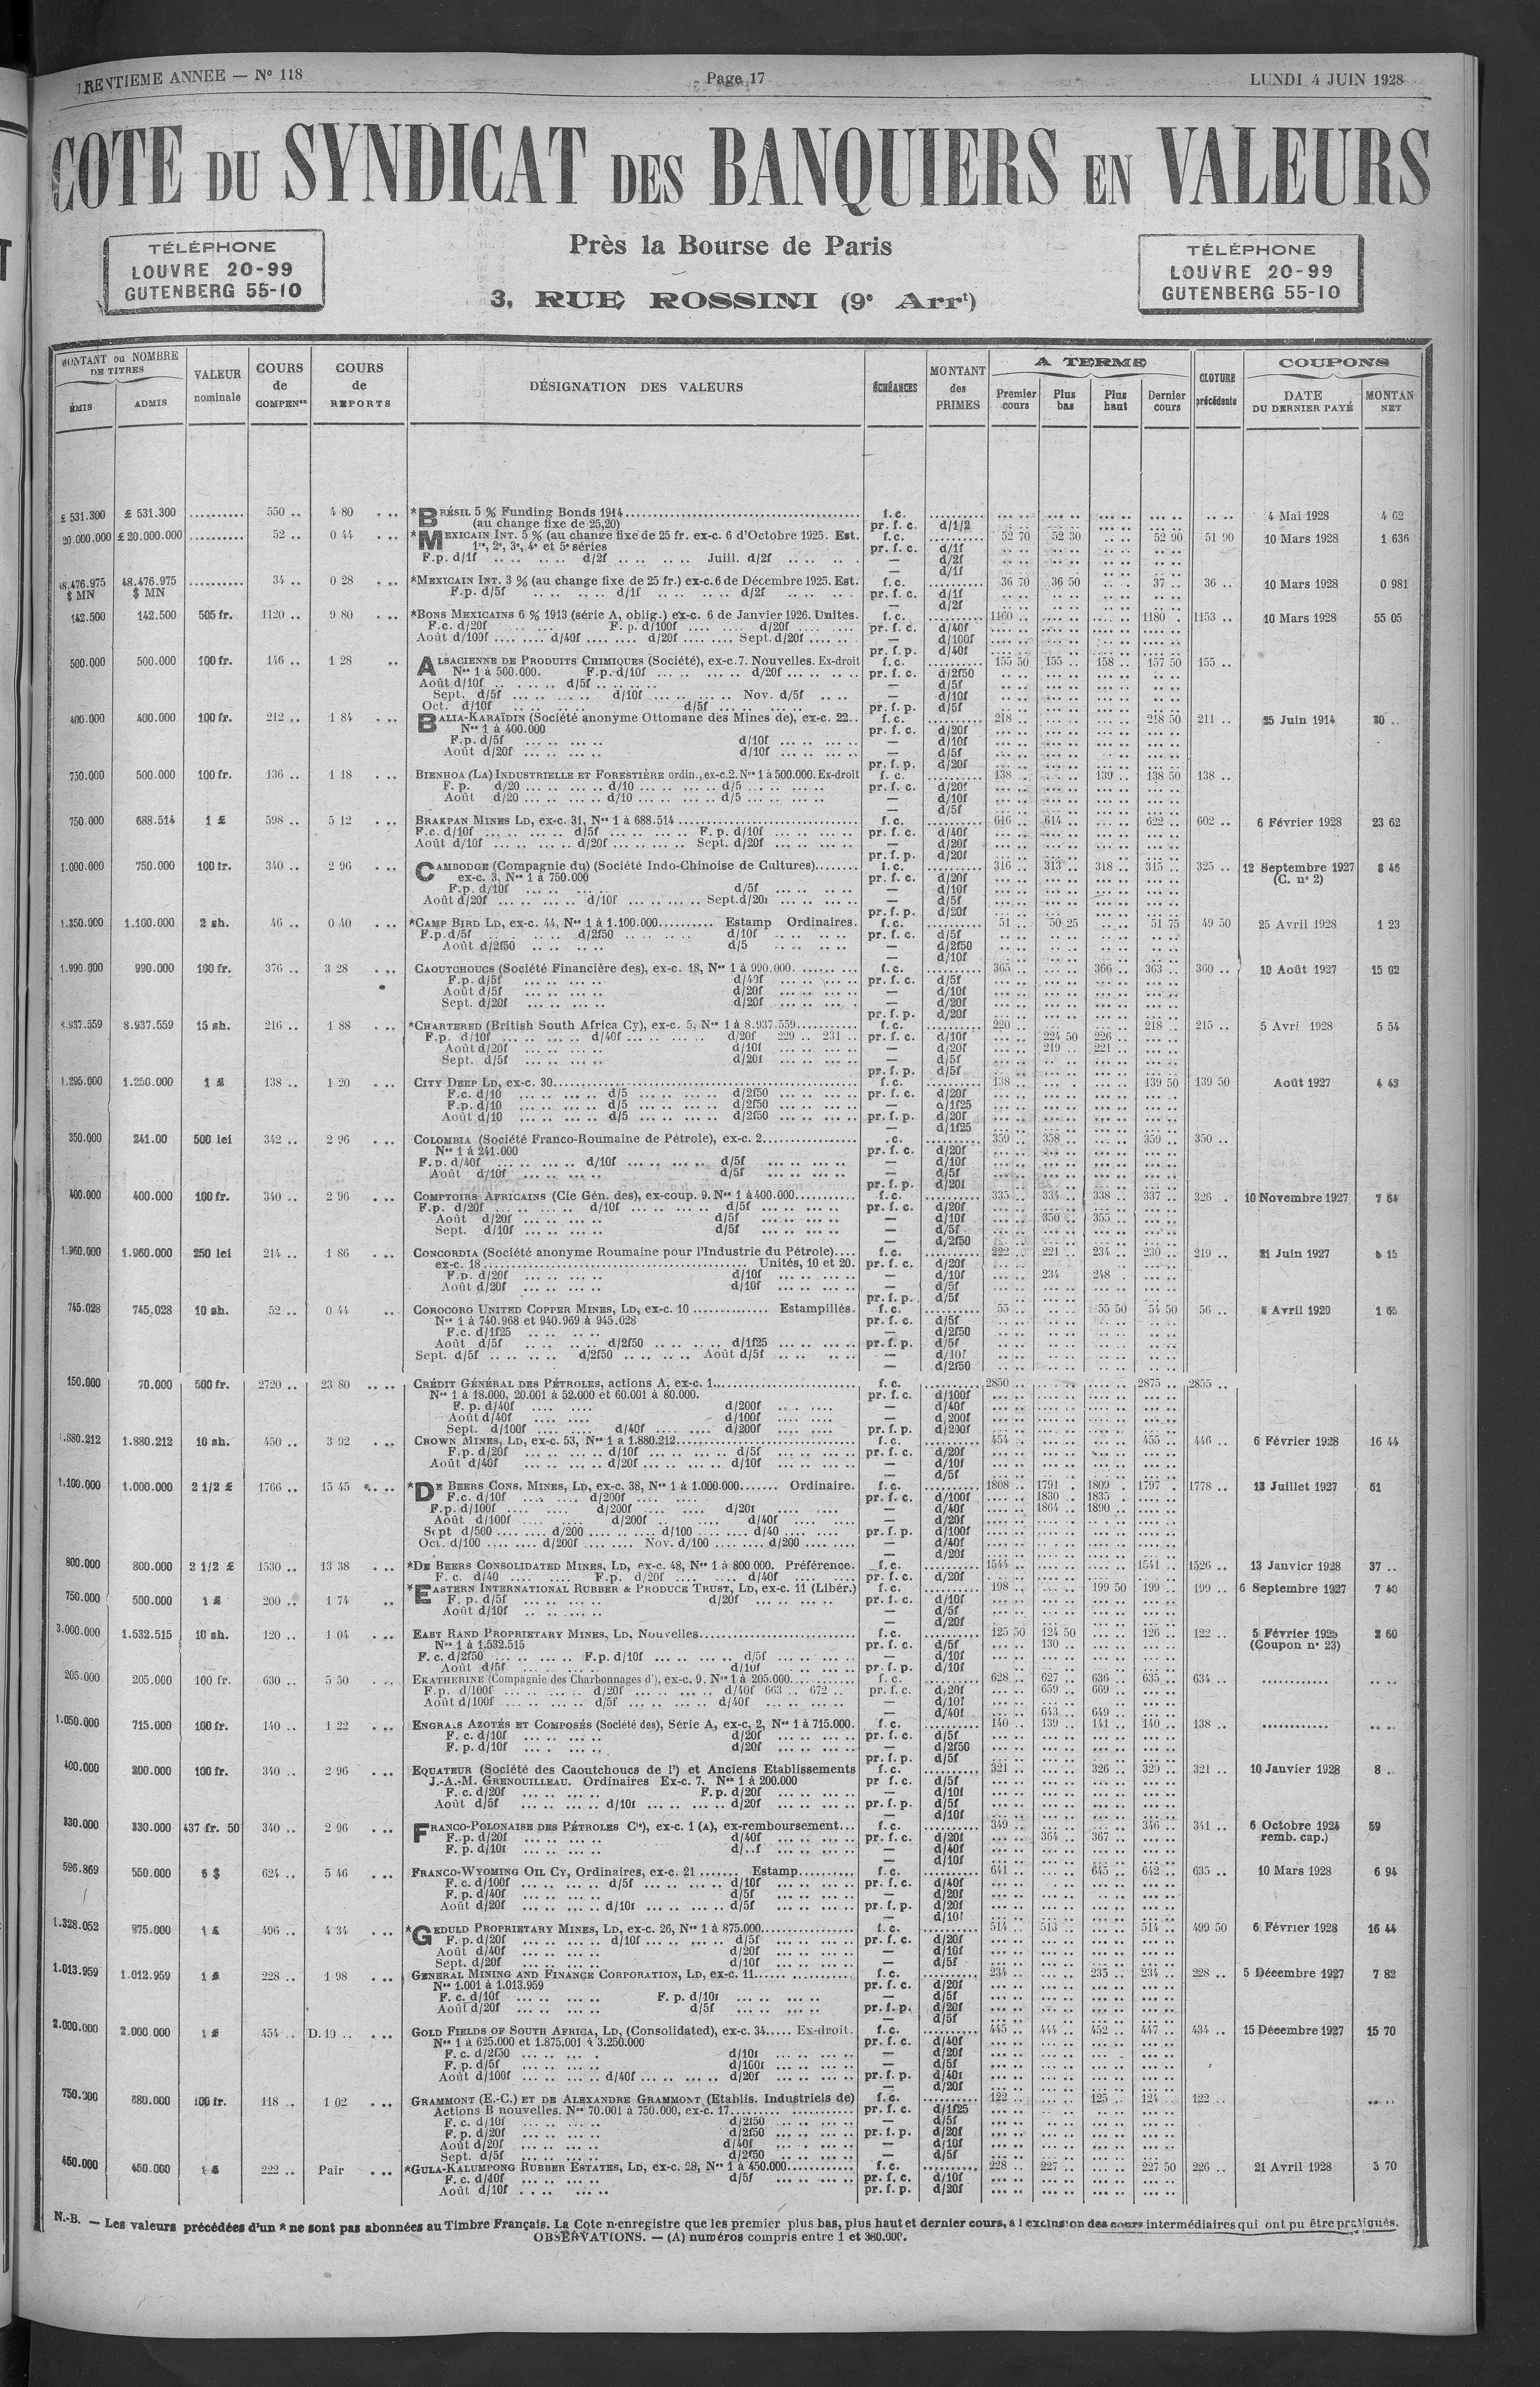 TRENTIEME ANNEE — N° 118
Page 17
LUNDI 4 JUIN 1928
COTE DU SYNDICAT DES BANQUIERS EN VALEURS
TÉLÉPHONE
LOUVRE 20-99
GUTENBERG 55-10
Près la Bourse de Paris
3, RUE ROSSINI (9e Arrt)
TÉLÉPHONE
LOUVRE 20-99
GUTENBERG 55-10
MONTANT ou NOMBRE DE TITRES
ÉMIS
ADMIS
VALEUR nominale
COURS de COMPENon
COURS de REPORTS
DÉSIGNATION DES VALEURS
ÉCHÉANCES
MONTANT des PRIMES
A TERME
Premier cours
Plus bas
Plus haut
Dernier cours
CLOTURE précédente
COUPONS
DATE DU DERNIER PAYÉ
MONTAN NET
£ 531.300 £ 531.300 .......... 550 .. 4 80 *BRÉSIL 5 % Funding Bonds 1914 f.c. 4 Mai 1928 4 62
(au change fixe de 25,20) pr. f. c. d/1/2
20.000.000 £ 20.000.000 .......... 52 .. 0 44 *MEXICAIN INT. 5 % (au change fixe de 25 fr. ex-c. 6 d'Octobre 1925. Est. f.c. 52 70 52 30 52 90 51 90 10 Mars 1928 1 636
1re, 2e, 3e, 4e et 5e séries pr. f. c. d/1f
F.p. d/1f d/2f Juill. d/2f — d/2f
— d/1f
48.476.975 $ MN 48.476.975 $ MN .......... 34 .. 0 28 *MEXICAIN INT. 3 % (au change fixe de 25 fr.) ex-c. 6 de Décembre 1925. Est. f.c. 36 70 36 50 37 .. 36 .. 10 Mars 1928 0 981
F.p. d/5f d/1f d/2f pr. f. c. d/1f
— d/2f
142.500 142.500 505 fr. 1120 .. 9 80 *BONS MEXICAINS 6 % 1913 (série A, oblig.) ex-c. 6 de Janvier 1926. Unités. f.c. 1160 .. 1180 . 1153 .. 10 Mars 1928 55 05
F.c. d/20f F. p. d/100f d/20f pr. f. c. d/40f
Août d/100f d/40f d/20f Sept. d/20f — d/100f
pr. f. p. d/40f
500.000 500.000 100 fr. 146 .. 1 28 ALSACIENNE DE PRODUITS CHIMIQUES (Société), ex-c. 7. Nouvelles. Ex-droit f.c. 155 50 155 .. 158 .. 157 50 155 ..
Nos 1 à 500.000. F.p. d/10f d/20f pr. f. c. d/2f50
Août d/10f d/5f — d/5f
Sept. d/5f d/10f Nov. d/5f — d/10f
Oct. d/10f d/5f pr. f. p. d/5f
400.000 400.000 100 fr. 212 .. 1 84 BALIA-KARAÏDIN (Société anonyme Ottomane des Mines de), ex-c. 22.. f.c. 218 .. 218 50 211 .. 25 Juin 1914 30 ..
Nos 1 à 400.000 pr. f. c. d/20f
F.p. d/5f d/10f — d/10f
Août d/20f d/10f — d/5f
pr. f. p. d/20f
750.000 500.000 100 fr. 136 .. 1 18 BIENHOA (LA) INDUSTRIELLE ET FORESTIÈRE ordin., ex-c. 2. Nos 1 à 500.000. Ex-droit f. c. 138 .. 139 .. 138 50 138 ..
F. p. d/20 d/10 d/5 pr. f. c. d/20f
Août d/20 d/10 d/5 — d/10f
— d/5f
750.000 688.514 1 £ 598 .. 5 12 BRAKPAN MINES LD, ex-c. 31, Nos 1 à 688.514 f.c. 616 .. 614 .. 622 .. 602 .. 6 Février 1928 23 62
F.c. d/10f d/5f F. p. d/10f pr. f. c. d/40f
Août d/10f d/20f Sept. d/20f — d/20f
pr. f. p. d/20f
1.000.000 750.000 100 fr. 340 .. 2 96 CAMBODGE (Compagnie du) (Société Indo-Chinoise de Cultures) f.c. 316 .. 313 .. 318 .. 315 .. 325 .. 12 Septembre 1927 8 46
ex-c. 3, Nos 1 à 750.000 pr. f. c. d/20f (C. n° 2)
F.p. d/10f d/5f — d/10f
Août d/20f d/10f Sept. d/20f — d/5f
pr. f. p. d/20f
1.350.000 1.100.000 2 sh. 46 .. 0 40 *CAMP BIRD LD, ex-c. 44, Nos 1 à 1.100.000 Estamp Ordinaires. f. c. 51 .. 50 25 51 75 49 50 25 Avril 1928 1 23
F.p. d/5f d/2f50 d/10f pr. f. c. d/5f
Août d/2f50 d/5 — d/2f50
— d/10f
1.990.000 990.000 100 fr. 376 .. 3 28 CAOUTCHOUCS (Société Financière des), ex-c. 18, Nos 1 à 990.000. f.c. 365 .. 366 .. 363 .. 360 .. 10 Août 1927 15 02
F.p. d/5f d/40f pr. f. c. d/5f
Août d/5f d/20f — d/10f
Sept. d/20f d/20f — d/20f
pr. f. p. d/20f
8.937.559 8.937.559 15 sh. 216 .. 1 88 *CHARTERED (British South Africa Cy), ex-c. 5, Nos 1 à 8.937.559 f.c. 220 .. 218 .. 215 .. 5 Avri 1928 5 54
F.p. d/10f d/40f d/20f 229 .. 231 .. pr. f. c. d/10f 224 50 226 ..
Août d/20f d/10f — d/20f 219 .. 221 ..
Sept. d/5f d/20f — d/5f
pr. f. p. d/5f
1.295.000 1.250.000 1 £ 138 .. 1 20 CITY DEEP LD, ex-c. 30 f.c. 138 .. 139 50 139 50 Août 1927 4 43
F.c. d/10 d/5 d/2f50 pr. f. c. d/20f
F.p. d/10 d/5 d/2f50 — d/1f25
Août d/10 d/5 d/2f50 pr. f. p. d/20f
— d/1f25
350.000 241.00 500 lei 342 .. 2 96 COLOMBIA (Société Franco-Roumaine de Pétrole), ex-c. 2 .c. 359 .. 358 .. 359 .. 350 ..
Nos 1 à 241.000 pr. f. c. d/20f
F.p. d/40f d/10f d/5f — d/10f
Août d/10f d/5f — d/5f
pr. f. p. d/20f
400.000 400.000 100 fr. 340 .. 2 96 COMPTOIRS AFRICAINS (Cie Gén. des), ex-coup. 9. Nos 1 à 400.000 f.c. 335 .. 334 .. 338 .. 337 .. 326 . 10 Novembre 1927 7 64
F.p. d/20f d/10f d/5f pr. f. c. d/20f
Août d/20f d/5f — d/10f 350 .. 355 ..
Sept. d/10f d/5f — d/5f
— d/2f50
1.960.000 1.960.000 250 lei 214 .. 1 86 CONCORDIA (Société anonyme Roumaine pour l'Industrie du Pétrole) f.c. 222 .. 221 .. 234 .. 230 .. 219 .. 21 Juin 1927 6 15
ex-c. 18 Unités, 10 et 20. pr. f. c. d/20f
F.p. d/20f d/10f — d/10f 234 248 .
Août d/20f d/10f — d/5f
pr. f. p. d/5f
745.028 745.028 10 sh. 52 .. 0 44 COROCORO UNITED COPPER MINES, LD, ex-c. 10 Estampillés. f. c. 55 .. 55 50 54 50 56 .. 8 Avril 1920 1 65
Nos 1 à 740.968 et 940.969 à 945.028 pr. f. c. d/5f
F.c. d/1f25 — d/2f50
Août d/5f d/2f50 d/1f25 pr. f. p. d/5f
Sept. d/5f d/2f50 Août d/5f — d/10f
— d/2f50
150.000 70.000 500 fr. 2720 .. 23 80 CRÉDIT GÉNÉRAL DES PÉTROLES, actions A, ex-c. 1 f. c. 2850 .. 2875 .. 2855 ..
Nos 1 à 18.000, 20.001 à 52.000 et 60.001 à 80.000. pr. f. c. d/100f
F. p. d/40f d/200f — d/40f
Août d/40f d/100f — d/200f
Sept. d/100f d/40f d/200f pr. f. p. d/200f
1.880.212 1.880.212 10 sh. 450 .. 3 92 CROWN MINES, LD, ex-c. 53, Nos 1 à 1.880.212 f.c. 454 .. 455 .. 446 .. 6 Février 1928 16 44
F.p. d/20f d/10f d/5f pr. f. c. d/20f
Août d/40f d/20f d/10f — d/10f
— d/5f
1.100.000 1.000.000 2 1/2 £ 1766 .. 15 45 *DE BEERS CONS. MINES, LD, ex-c. 38, Nos 1 à 1.000.000 Ordinaire. f.c. 1808 .. 1791 . 1809 1797 . 1778 .. 13 Juillet 1927 61
F.c. d/10f d/200f pr. f. c. d/100f 1830 .. 1835 .
F.p. d/100f d/200f d/20f — d/40f 1864 .. 1890 ..
Août d/100f d/200f d/40f — d/20f
Sept d/500 d/200 d/100 d/40 pr. f. p. d/100f
Oct. d/100 d/200f Nov. d/100 d/200 — d/40f
— d/20f
800.000 800.000 2 1/2 £ 1530 .. 13 38 *DE BEERS CONSOLIDATED MINES, LD, ex-c. 48, Nos 1 à 800 000. Préférence. f.c. 1544 .. 1541 .. 1526 .. 13 Janvier 1928 37 ..
F. c. d/40 F.p. d/20f d/40f pr. f. c. d/20f
750.000 500.000 1 £ 200 .. 1 74 *EASTERN INTERNATIONAL RUBBER & PRODUCE TRUST, LD, ex-c. 11 (Libér.) f. c. 198 .. 199 50 199 .. 199 .. 6 Septembre 1927 7 40
F. p. d/5f d/20f pr. f. c. d/10f
Août d/10f — d/5f
— d/20f
3.000.000 1.532.515 10 sh. 120 .. 1 04 EAST RAND PROPRIETARY MINES, LD, Nouvelles f.c. 125 50 124 50 126 .. 122 .. 5 Février 192 2 60
Nos 1 à 1.532.515 pr. f. c. d/5f 130 .. (Coupon n° 23)
F. c. d/2f50 F.p. d/10f d/5f — d/10f
Août d/5f d/10f pr. f. p. d/10f
205.000 205.000 100 fr. 630 .. 5 50 EKATHERINE (Compagnie des Charbonnages d'), ex-c. 9. Nos 1 à 205.000 f. c. 628 .. 627 .. 636 .. 635 .. 634 ..
F.p. d/100f d/20f d/40f 663 .. 672 .. pr. f. c. d/20f 659 .. 669 ..
Août d/100f d/5f d/40f — d/10f
— d/40f 643 .. 649 ..
1.050.000 715.000 100 fr. 140 .. 1 22 ENGRAIS AZOTÉS ET COMPOSÉS (Société des), Série A, ex-c. 2, Nos 1 à 715.000. f. c. 140 .. 139 .. 141 .. 140 .. 138 ..
F. c. d/10f d/20f pr. f. c. d/5f
F. p. d/10f d/20f — d/2f50
pr. f. p. d/5f
400.000 200.000 100 fr. 340 .. 2 96 EQUATEUR (Société des Caoutchoucs de l') et Anciens Etablissements f.c. 321 .. 326 .. 320 .. 321 .. 10 Janvier 1928 8 ..
J.-A.-M. GRENOUILLEAU. Ordinaires Ex-c. 7. Nos 1 à 200.000 pr f. c. d/5f
F. c. d/20f F.p. d/20f — d/10f
Août d/5f d/10f d/20f pr. f. p. d/5f
— d/10f
330.000 330.000 437 fr. 50 340 .. 2 96 FRANCO-POLONAISE DES PÉTROLES Cie), ex-c. 1 (A), ex-remboursement... f. c. 349 .. 346 .. 341 .. 6 Octobre 1924 59
F. p. d/20f d/40f pr. f. c. d/20f 364 .. 367 .. remb. cap.)
F. p. d/10f d/..f — d/40f
— d/10f
596.869 550.000 6 $ 624 .. 5 46 FRANCO-WYOMING OIL CY, Ordinaires, ex-c. 21 Estamp f. c. 641 .. 645 .. 642 .. 635 .. 10 Mars 1928 6 94
F. c. d/100f d/5f d/10f pr. f. c. d/40f
F. p. d/40f d/5f — d/20f
Août d/20f d/10f d/5f pr. f. p. d/20f
— d/10f
1.328.052 875.000 1 £ 496 .. 4 34 *GEDULD PROPRIETARY MINES, LD, ex-c. 26, Nos 1 à 875.000 f. c. 514 .. 513 .. 514 .. 499 50 6 Février 1928 16 44
F. p. d/20f d/10f d/5f pr. f. c. d/20f
Août d/40f d/20f — d/10f
Sept. d/20f d/10f — d/5f
1.013.959 1.012.959 1 £ 228 .. 1 98 GENERAL MINING AND FINANCE CORPORATION, LD, ex-c. 11 f. c. 234 .. 235 .. 234 .. 228 .. 5 Décembre 1927 7 82
Nos 1.001 à 1.013.959 pr. f. c. d/20f
F. c. d/10f F. p. d/10f — d/5f
Août d/20f d/5f pr. f. p. d/20f
— d/5f
2.000.000 2.000.000 1 £ 454 .. D. 19 .. GOLD FIELDS OF SOUTH AFRICA, LD, (Consolidated), ex-c. 34 Ex-droit. f. c. 445 .. 444 .. 452 .. 447 .. 434 .. 15 Décembre 1927 15 70
Nos 1 à 625.000 et 1.875.001 à 3.250.000 pr. f. c. d/40f
F. c. d/2f50 d/10f — d/20f
F. p. d/5f d/100f — d/5f
Août d/100f d/40f d/20f pr. f. p. d/40f
— d/20f
750.000 680.000 100 fr. 118 .. 1 02 GRAMMONT (E.-C.) ET DE ALEXANDRE GRAMMONT (Etablis. Industriels de) f. c. 122 .. 125 .. 124 .. 122 ..
Actions B nouvelles. Nos 70.001 à 750.000, ex-c. 17 pr. f. c. d/1f25
F. c. d/10f d/2f50 — d/5f
F. p. d/20f d/2f50 pr. f. p. d/20f
Août d/20f d/40f — d/10f
Sept. d/5f d/2f50 — d/5f
450.000 450.000 1 £ 222 .. Pair *GULA-KALUMPONG RUBBER ESTATES, LD, ex-c. 28, Nos 1 à 450.000 f. c. 228 .. 227 .. 227 50 226 .. 21 Avril 1928 3 70
F. c. d/40f d/5f pr. f. c. d/10f
Août d/10f pr. f. p. d/20f
N.-B. — Les valeurs précédées d'un * ne sont pas abonnées au Timbre Français. La Cote n'enregistre que les premier plus bas, plus haut et dernier cours, à l exclusion des cours intermédiaires qui ont pu être pratiqués.
OBSERVATIONS. — (A) numéros compris entre 1 et 380.000.